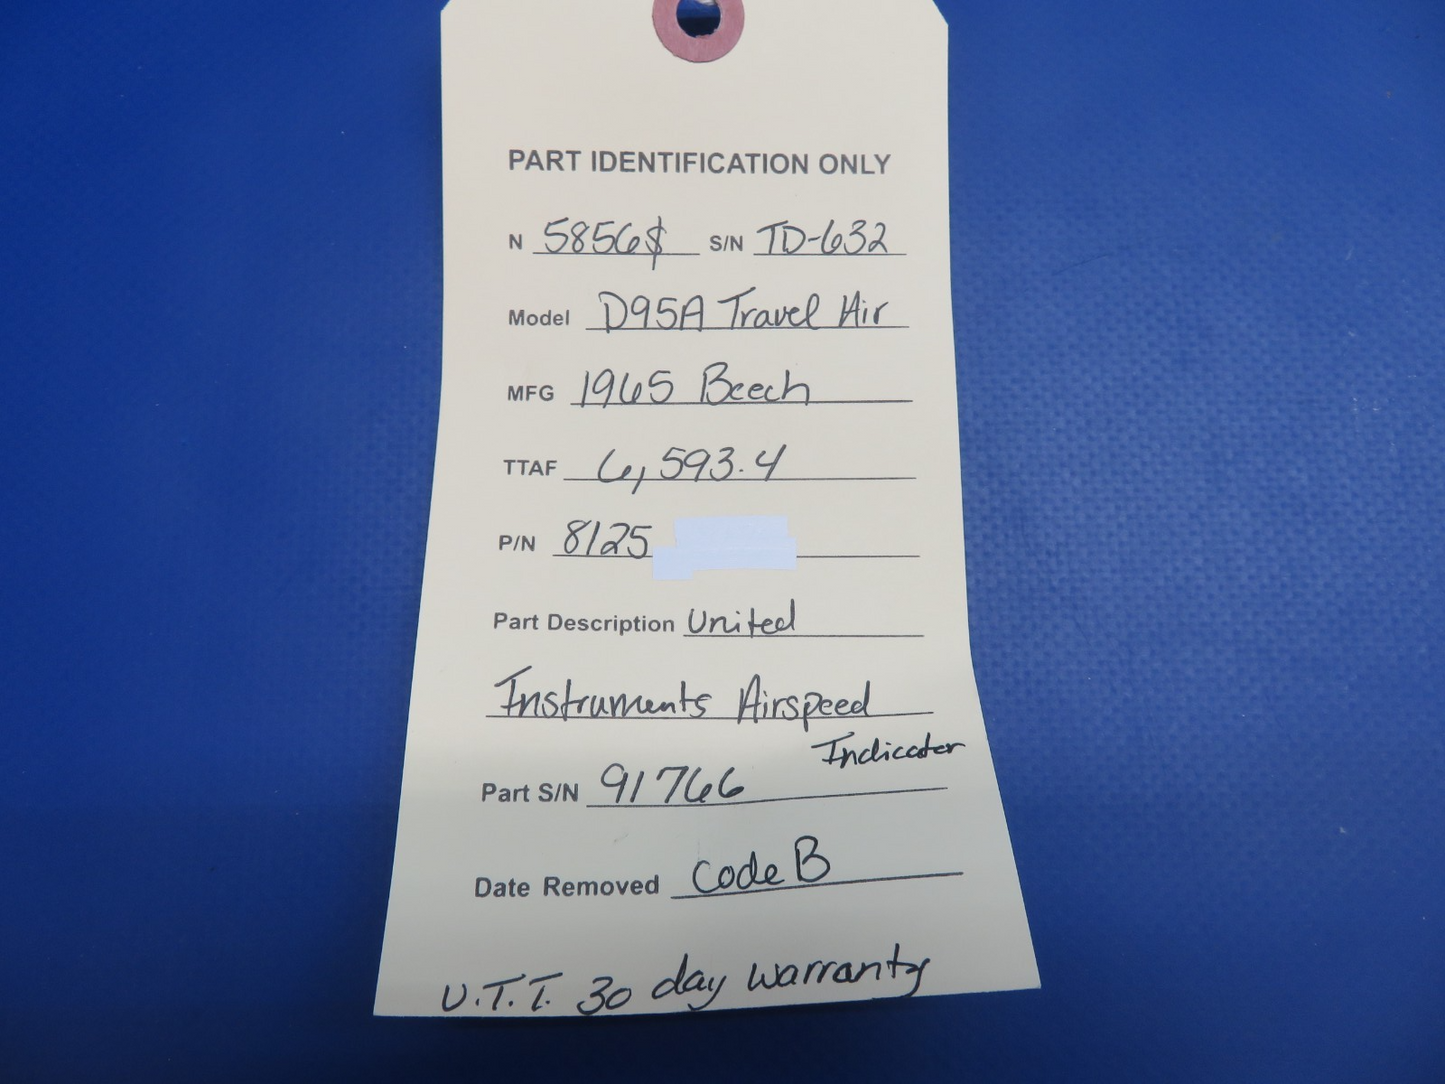 PART IDENTIFICATION ONLY
N 5856$ S/N TD-632
Model D95A Travel Air
MFG 1965 Beech
TTAF 6,593.4
P/N 8125
Part Description United
Instruments Airspeed
Indicator
Part S/N 91766
Date Removed Code B
U.T.T. 30 day warranty